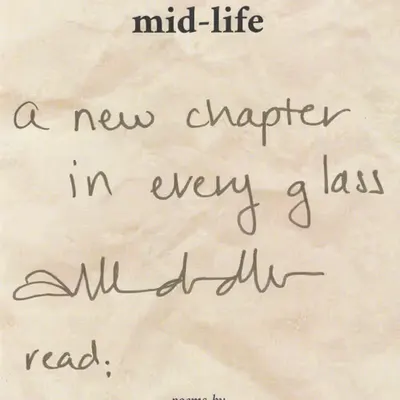 mid-life
a new chapter
in every glass
read;
poems by